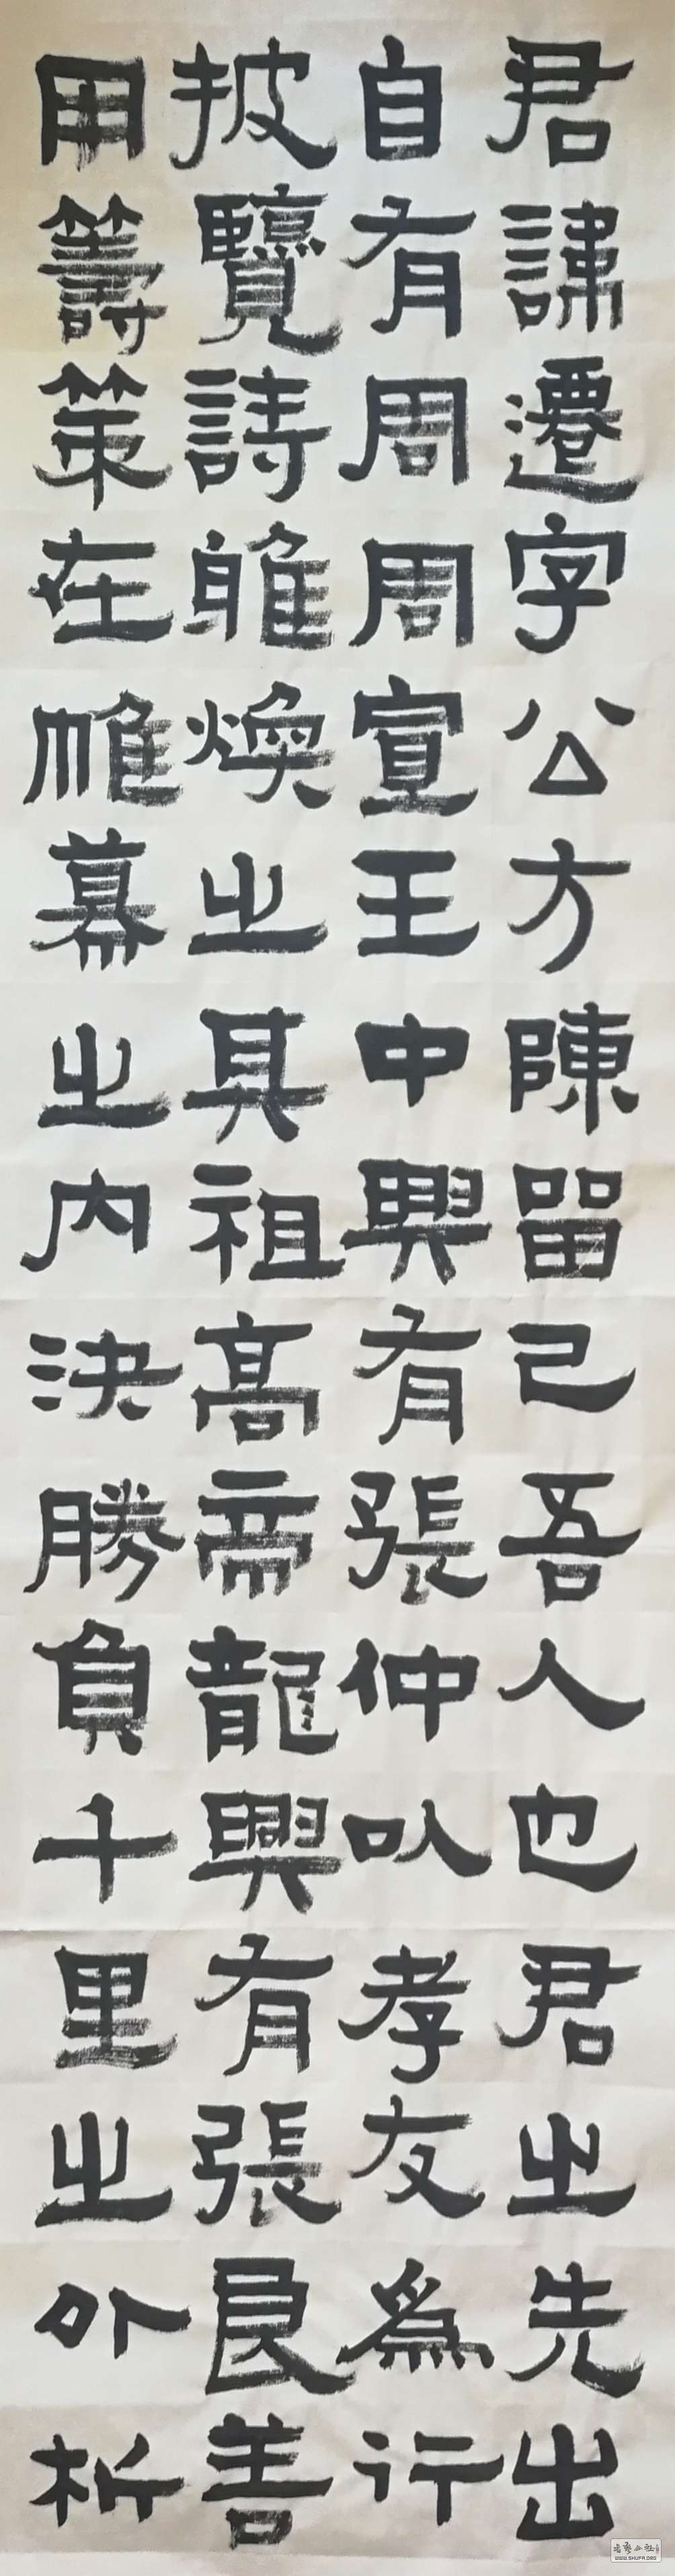 君諱遷字公方陳留己吾人也君之先出
自有周周宣王中興有張仲以孝友為行
披覽詩雅煥之其祖高帝龍興有張良善
用籌策在帷幕之內決勝負千里之外析
WWW.SHUFA.ORG